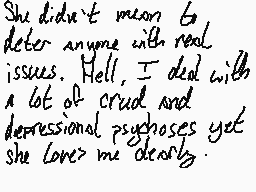 She didn't mean to
deter anyone with real
issues. Hell, I deal with
a lot of crud and
depressional psychoses yet
she loves me dearly.